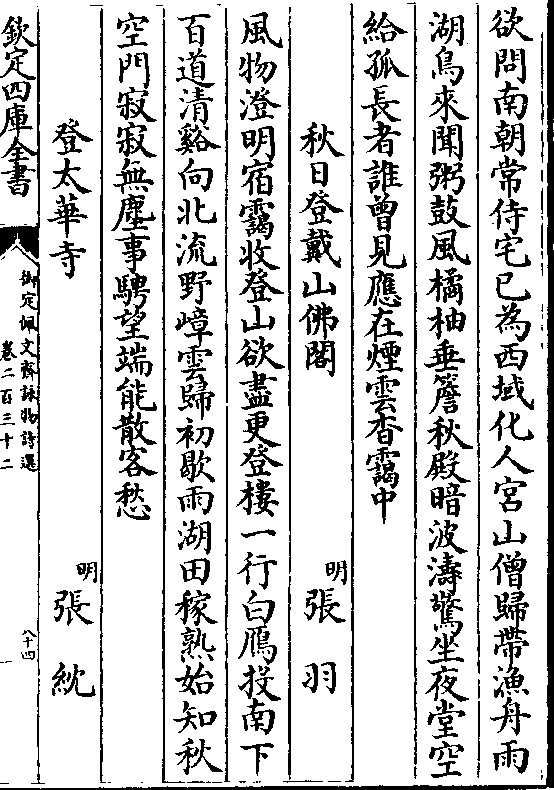 欲問南朝常侍宅已為西域化人宮山僧歸帶漁舟雨
湖鳥來聞粥鼓風橘柚垂簷秋殿暗波濤驚坐夜堂空
給孤長者誰曾見應在煙雲杳靄中
秋日登戴山佛閣 明 張羽
風物澄明宿靄收登山欲盡更登樓一行白鴈投南下
百道清谿向北流野嶂雲歸初歇雨湖田稼熟始知秋
空門寂寂無塵事騁望端能散客愁
登太華寺 明 張紞
欽定四庫全書
御定佩文齋詠物詩選
卷二百三十二
八十四